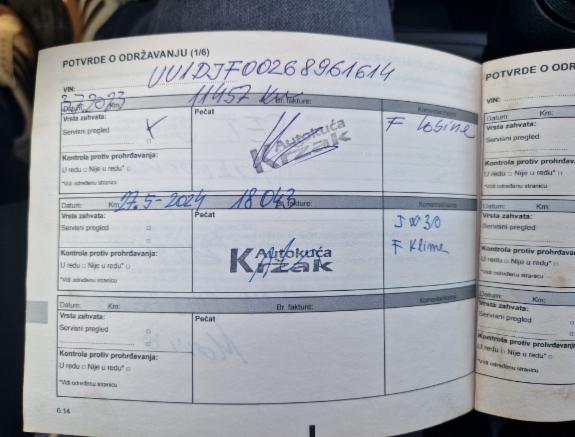 POTVRDE O ODRŽAVANJU (1/6)
VIN: UU1DJF00268961614
Datum: 3.7.2023 Km: 11457 km Br. fakture: Komentari:
Vrsta zahvata:
Servisni pregled X
Pečat
Autokuća
Kržak
F
Kontrola protiv prohrđavanja:
U redu □ Nije u redu* □
*Vidi određenu stranicu
Datum: Km: 27.5-2024 18 043 Br. fakture:
Vrsta zahvata:
Servisni pregled □
□
Pečat
Autokuća
Kržak
5W30
F Klime
Kontrola protiv prohrđavanja:
U redu □ Nije u redu* □
*Vidi određenu stranicu
Datum: Km: Br. fakture: Komentari:
Vrsta zahvata:
Servisni pregled □
□
Pečat
Kontrola protiv prohrđavanja:
U redu □ Nije u redu* □
*Vidi određenu stranicu
6.14
POTVRDE O ODR
VIN:
Datum: Km:
Vrsta zahvata:
Servisni pregled
Kontrola protiv prohrđavanja:
U redu □ Nije u redu* □
*Vidi određenu stranicu
Datum: Km:
Vrsta zahvata:
Servisni pregled
Kontrola protiv prohrđavanja:
U redu □ Nije u redu* □
*Vidi određenu stranicu
Datum: Km:
Vrsta zahvata:
Servisni pregled
Kontrola protiv prohrđavanja
U redu □ Nije u redu* □
*Vidi određenu stranicu